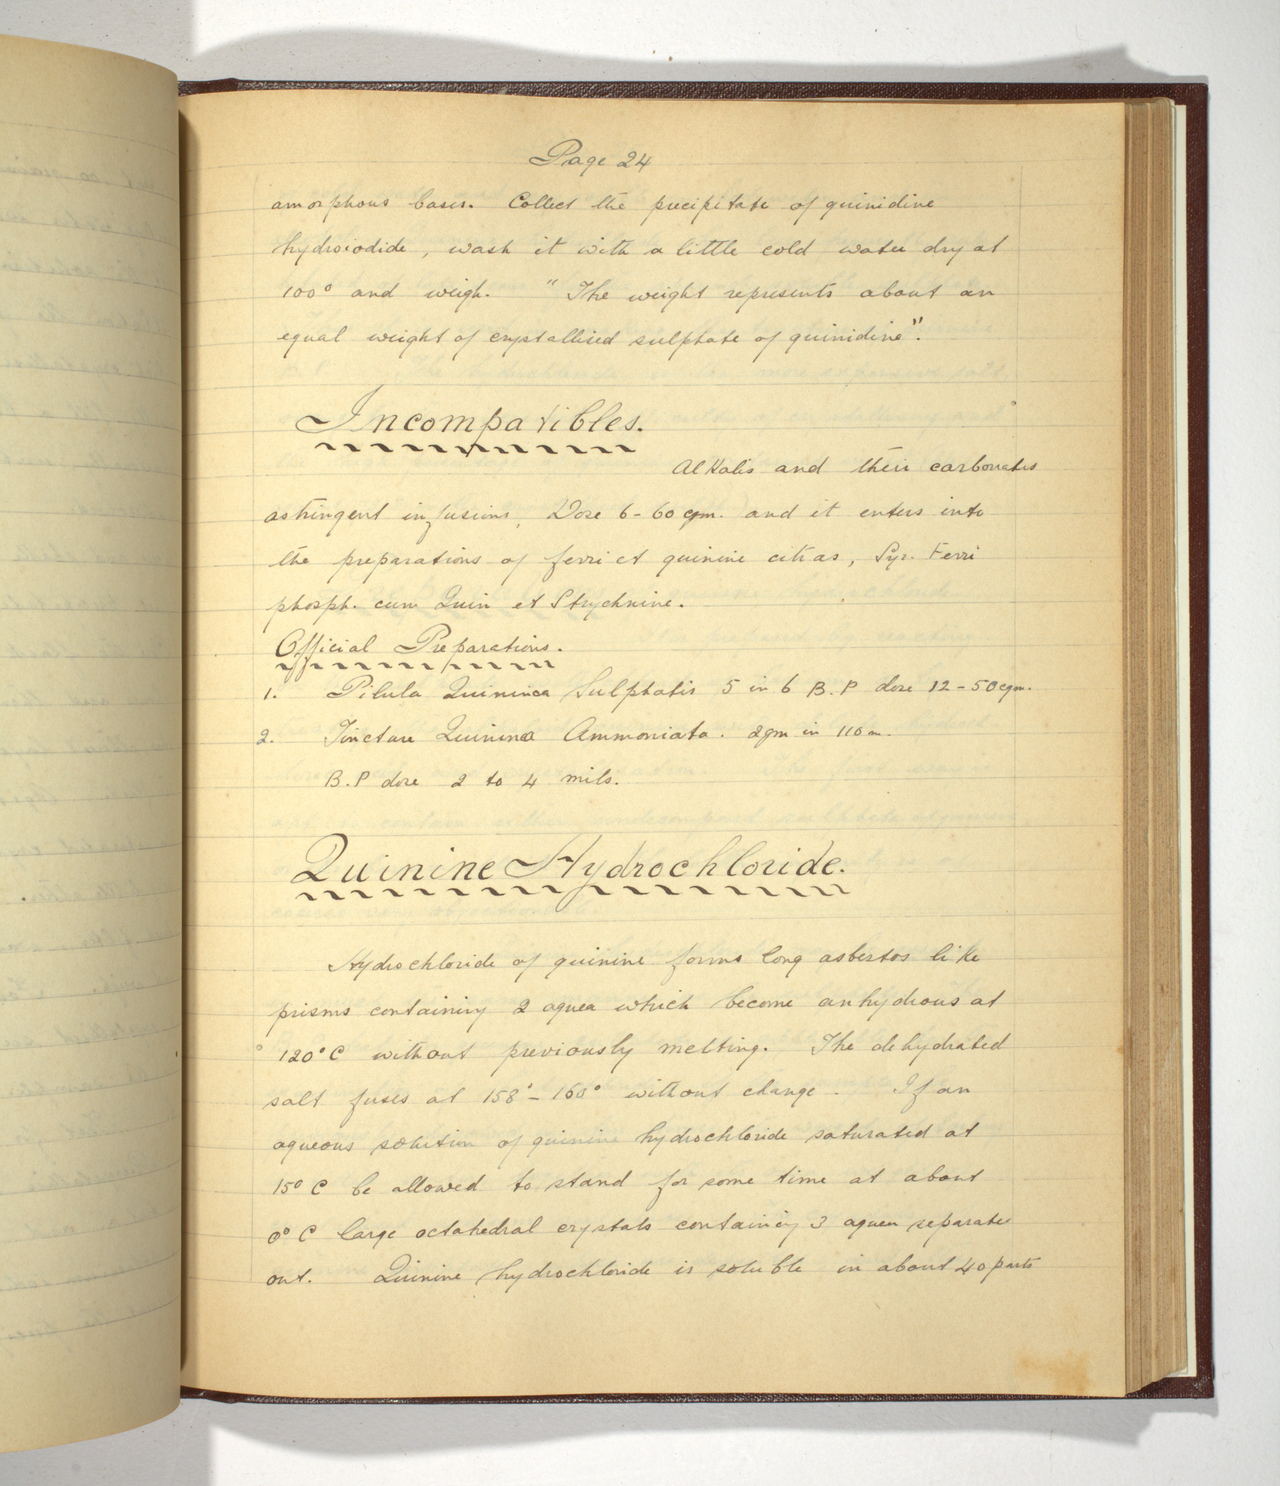 Page 24
amorphous bases. Collect the precipitate of quinidine
hydroiodide, wash it with a little cold water dry at
100° and weigh. "The weight represents about an
equal weight of crystallised sulphate of quinidine".
Incompatibles.
Alkalis and their carbonates
astringent infusions, Dose 6-60 cgm. and it enters into
the preparations of ferri et quinine citras, Syr. Ferri
phosph. cum Quin et Strychnine.
Official Preparations.
1. Pilula Quininea Sulphatis 5 in 6 B.P dose 12-50cgm.
2. Tincture Quininea Ammoniata. 2gm in 110
B.P dose 2 to 4 mils.
Quinine Hydrochloride.
Hydrochloride of quinine forms long asbestos like
prisms containing 2 aquea which become anhydrous at
120°C without previously melting. The dehydrated
salt fuses at 158°-160° without change. If an
aqueous solution of quinine hydrochloride saturated at
15°C be allowed to stand for some time at about
0°C large octahedral crystals containing 3 aquea separate
out. Quinine hydrochloride is soluble in about 40 parts